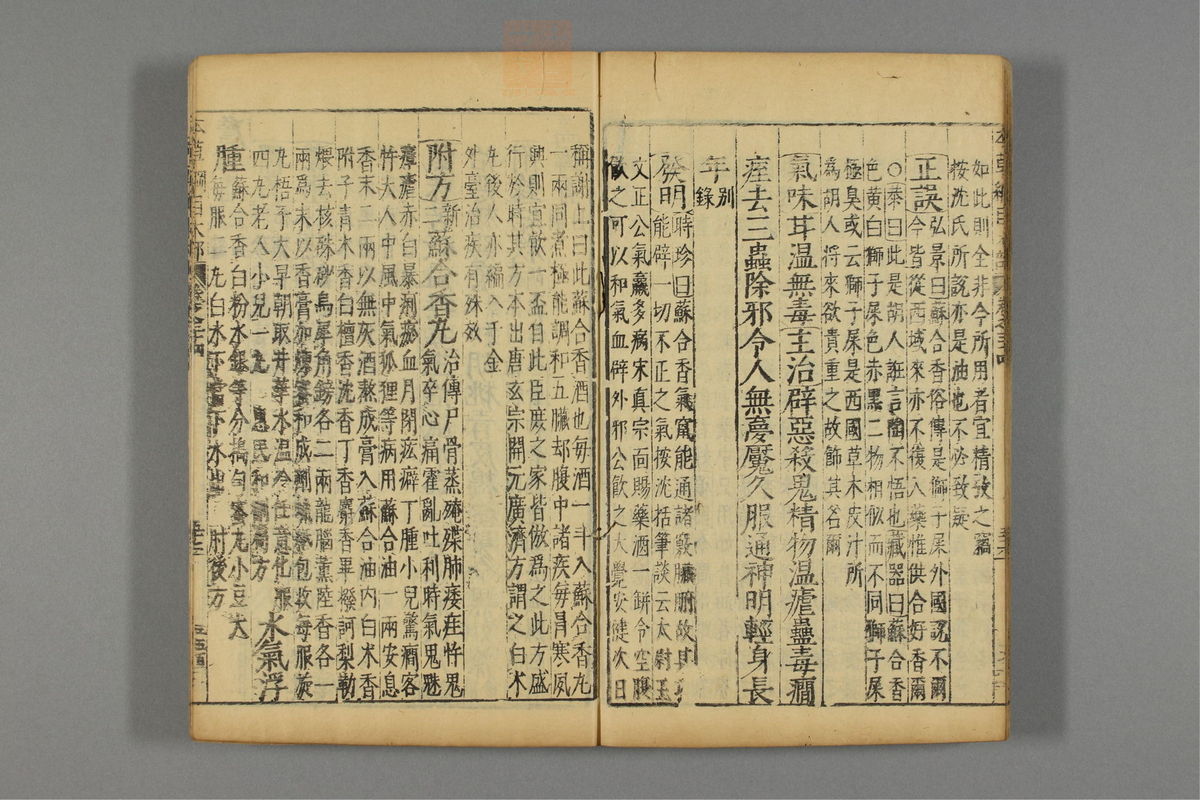 如此則全非今所用者宜精攷之竊
按沈氏所說亦是油也不必致疑
正誤弘景曰蘇合香俗傳是獅子屎外國說不爾
今皆從西域來亦不復入藥惟供合好香爾
○恭曰此是胡人誑言陶不悟也藏器曰蘇合香
色黃白獅子屎色赤黑二物相似而不同獅子屎
極臭或云獅子屎是西國草木皮汁所
為胡人將來欲貴重之故飾其名爾
氣味甘溫無毒主治辟惡殺鬼精物溫瘧蠱毒癇
痓去三蟲除邪令人無夢魘久服通神明輕身長
年別錄
發明時珍曰蘇合香氣竄能通諸竅臟腑故其
能辟一切不正之氣按沈括筆談云太尉王
文正公氣羸多病宋真宗面賜藥酒一缾令空腹
飲之可以和氣血辟外邪公飲之大覺安健次日
稱謝上曰此蘇合香酒也每酒一斗入蘇合香丸
一兩同煮極能調和五臟却腹中諸疾每冒寒夙
興則宜飲一盃自此臣庶之家皆倣為之此方盛
行於時其方本出唐玄宗開元廣濟方謂之白朮
丸後人亦編入千金
外臺治疾有殊效
附方新二蘇合香丸治傳尸骨蒸殗殜肺痿疰忤鬼
氣卒心痛霍亂吐利時氣鬼魅
瘴瘧赤白暴痢瘀血月閉痃癖丁腫小兒驚癇客
忤大人中風中氣狐狸等病用蘇合油一兩安息
香末二兩以無灰酒熬成膏入蘇合油內白朮香
附子青木香白檀香沈香丁香麝香蓽撥訶梨勒
煨去核硃砂烏犀角鎊各二兩龍腦薰陸香各一
兩為末以香膏加煉蜜和成劑蠟紙包收每服旋
丸梧子大早朝取井華水溫冷任意化服
四丸老人小兒一丸惠民和劑局方水氣浮
腫蘇合香白粉水銀等分搗勻蜜丸小豆大
每服二丸白水下當下水出肘後方